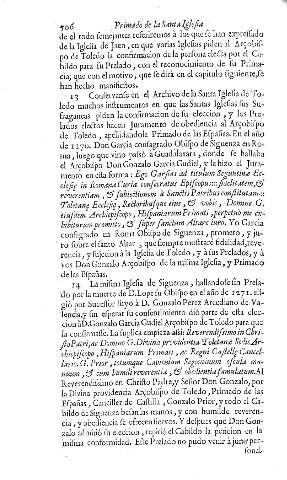 506 Primado de la Santa Iglesia
de el todo semejantes referiremos à los que se han expressado
de la Iglesia de Jaen, en que varias Iglesias piden al Arçobis-
po de Toledo la confirmacion de la persona electa por el Ca-
bildo para su Prelado, con el reconocimiento de su Prima-
cia; que con el motivo, que se dirà en el capitulo siguiente, se
han hecho manifiestos.
13 Conservanse en el Archivo de la Santa Iglesia de To-
ledo muchos instrumentos en que las Santas Iglesias sus Su-
fraganeas piden la confirmacion de su eleccion, y los Pre-
lados electos hazen juramento de obediencia al Arçobispo
de Toledo, apellidandole Primado de las Españas. En el año
de 1270. Don Garcia consagrado Obispo de Siguenza en Ro-
ma, luego que vino passò à Guadalaxara, donde se hallaba
el Arçobispo Don Gonzalo Garcia Gudiel, y le hizo al Jura-
mento en esta forma: Ego Garsias ad titulum Seguntinæ Ec-
clesiæ in Romana Curia consecratus Episcopus: fidelitatem, &
reverentiam, & subiectionem à Sanctis Patribus constitutam::
Toletanæ Ecclesiæ, Rectoribusque eius, & vobis, Domine G.
eiusdem Archiepiscopo, Hispaniarum Primati, perpetuò me ex-
hibiturum promitto, & super sanctum Altare iuro. Yo Garcia
consagrado en Roma Obispo de Siguenza, prometo, y ju-
ro sobre el santo Altar, que siempre mostrarè fidelidad, reve-
rencia, y sujecion à la Iglesia de Toledo, y à sus Prelados, y à
vos Don Gonzalo Arçobispo de la misma Iglesia, y Primado
de las Españas.
14 La misma Iglesia de Siguenza, hallandose sin Prela-
do por la muerte de D. Lope su Obispo en el año de 1271. eli-
giò por Sucessor suyo à D. Gonzalo Perez Arcediano de Va-
lencia, y sin esperar su consentimiento diò parte de esta elec-
cion à D. Gonzalo Garcia Gudiel Arçobispo de Toledo para que
la confirmasse. La suplica empieza assi: Reverendissimo in Chri-
sto Patri, ac Domino G. Divina providentia Toletanæ Sedis Ar-
chiepiscopo, Hispaniarum Primati, ac Regni Castellæ Cancel-
lario. G. Prior, totumque Capitulum Segontinum osculũ ma-
nuum, & cum humili reverentia, & obedientia famulatum. Al
Reverendissimo en Christo Padre, y Señor Don Gonzalo, por
la Divina providencia Arçobispo de Toledo, Primado de las
Españas, Canciller de Castilla, Gonzalo Prior, y todo el Ca-
bildo de Siguenza besan las manos, y con humilde reveren-
cia, y obediencia se ofrecen siervos. Y despues que Don Gon-
zalo admitiò su eleccion, repitiò el Cabildo la peticion en la
misma conformidad. Este Prelado no pudo venir à jurar per-
sonal-